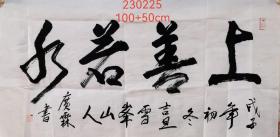 230225
100+50cm
上善若水
戊子
年初冬吉旦雪峯山人
廣霖
書